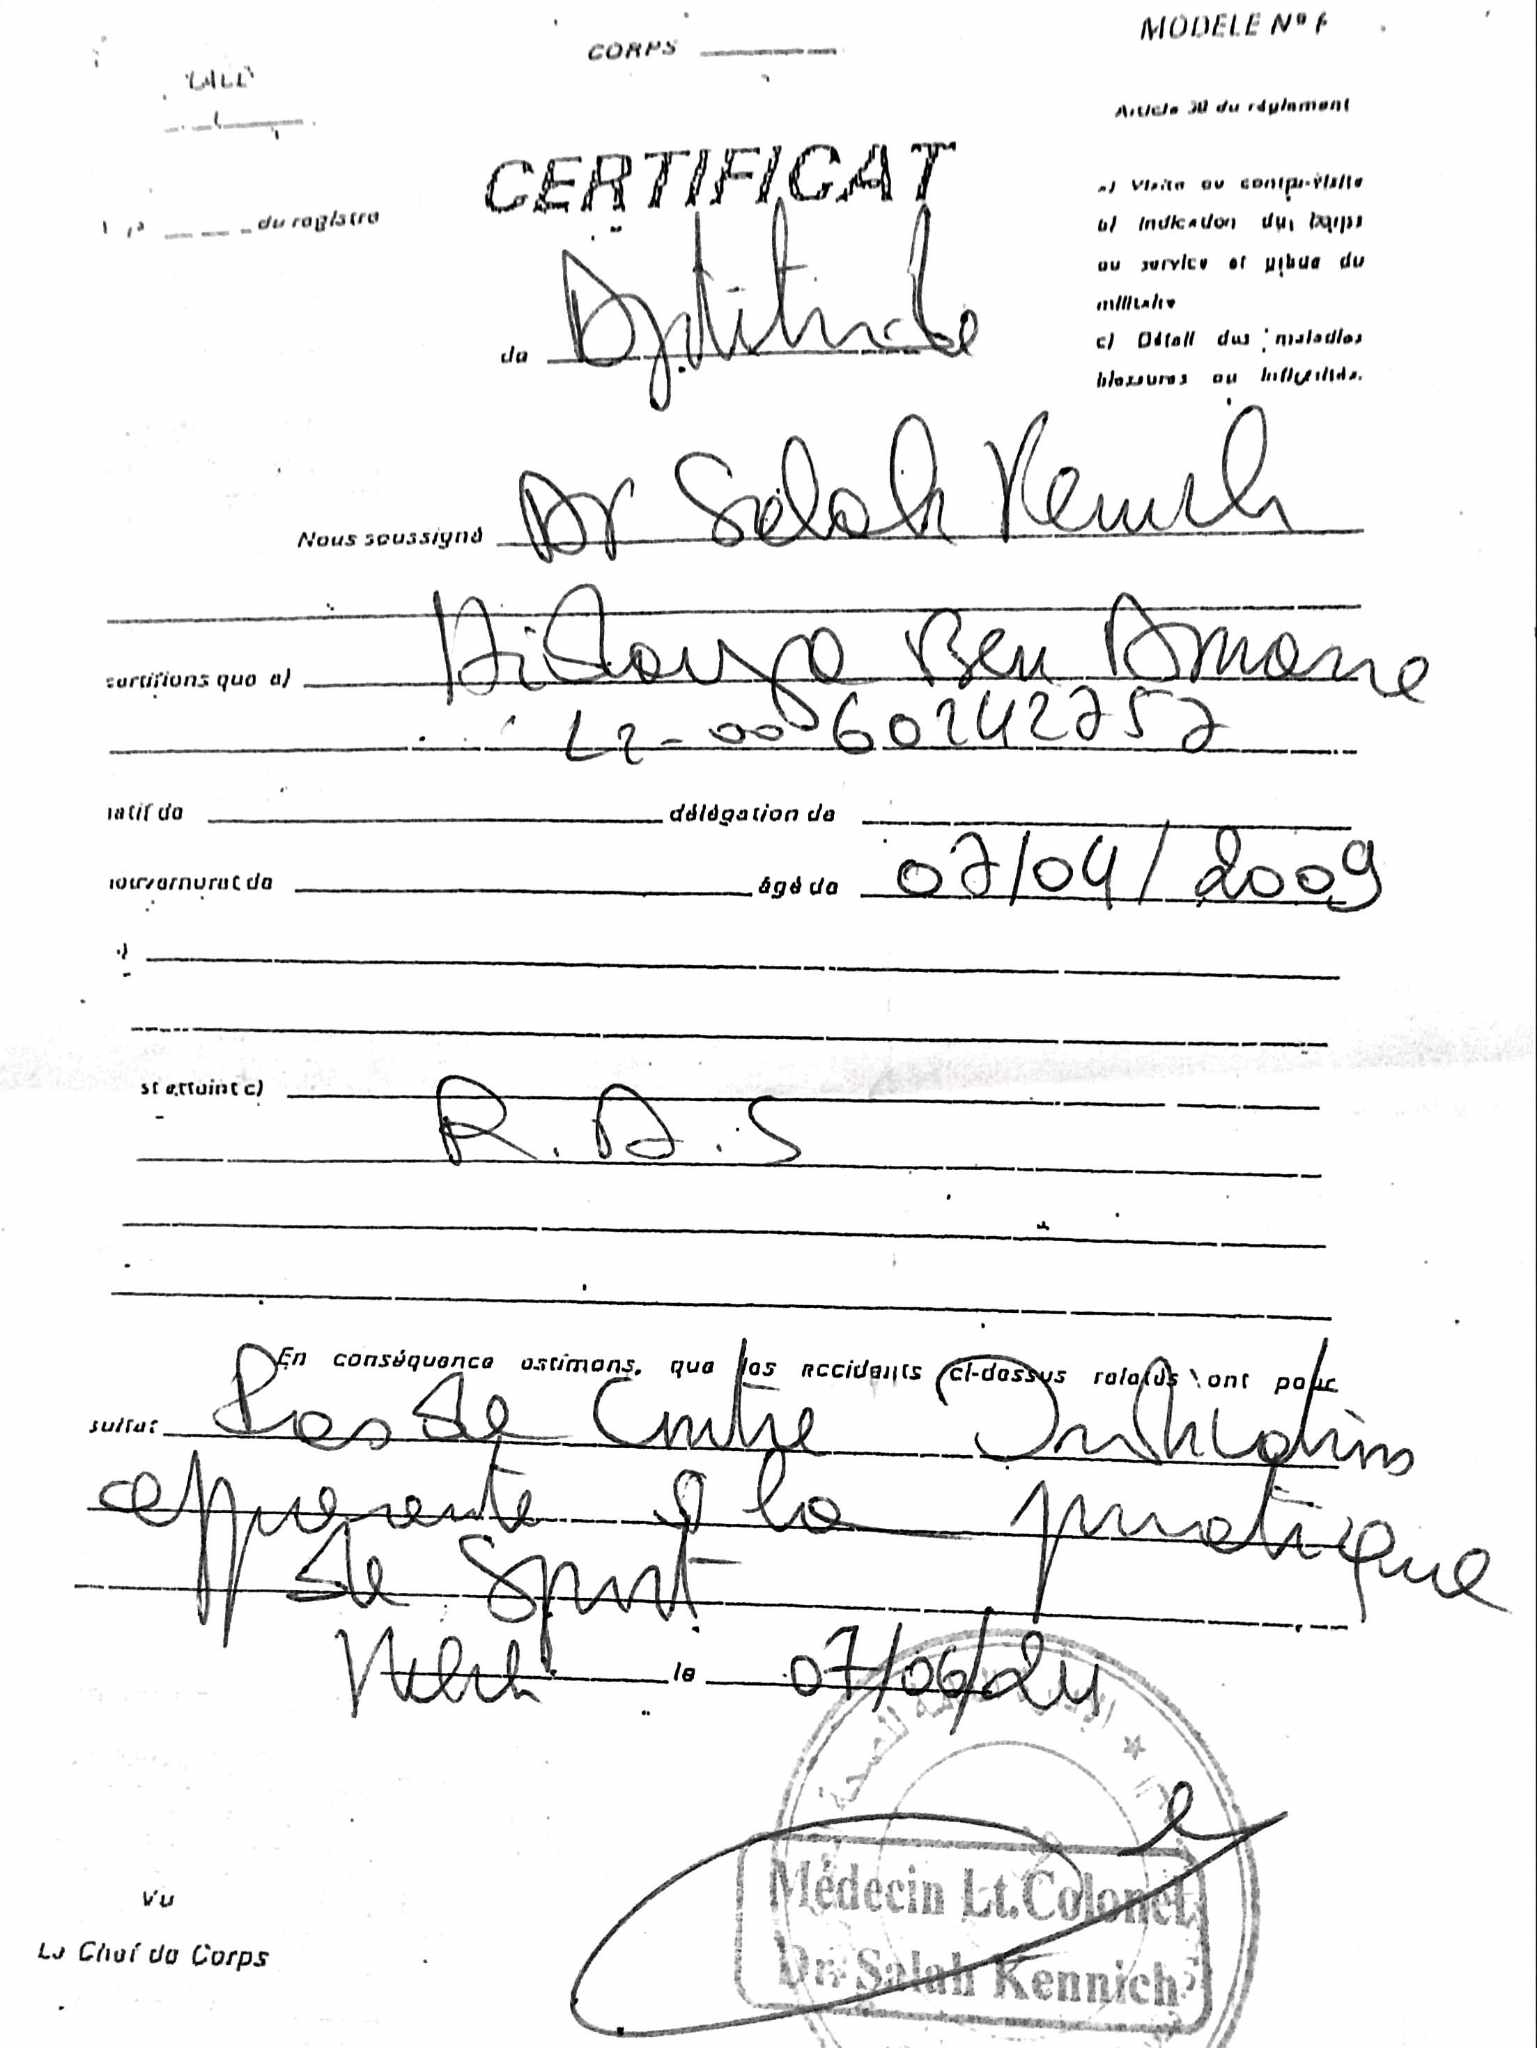 CORPS
MODELE Nº
Article 30 du règlement
CERTIFICAT
a) Visite ou contre-visite
du registre
b) Indication du corps
ou service et grade du
militaire
c) Détail des maladies
blessures ou infirmités.
de Aptitude
Nous soussigné Dr Salah Kennich
certifions que a) Ben Amane
natif de délégation de
gouvernorat de âgé de 07/04/2009
st atteint c)
R.A.S
En conséquence estimons, que les accidents ci-dessus relatés ont pour
sultat Pas de Contre Indications
apparente à la pratique
de Sport
le 07/06/24
Médecin Lt.Colonel
Dr. Salah Kennich
Vu
Le Chef de Corps